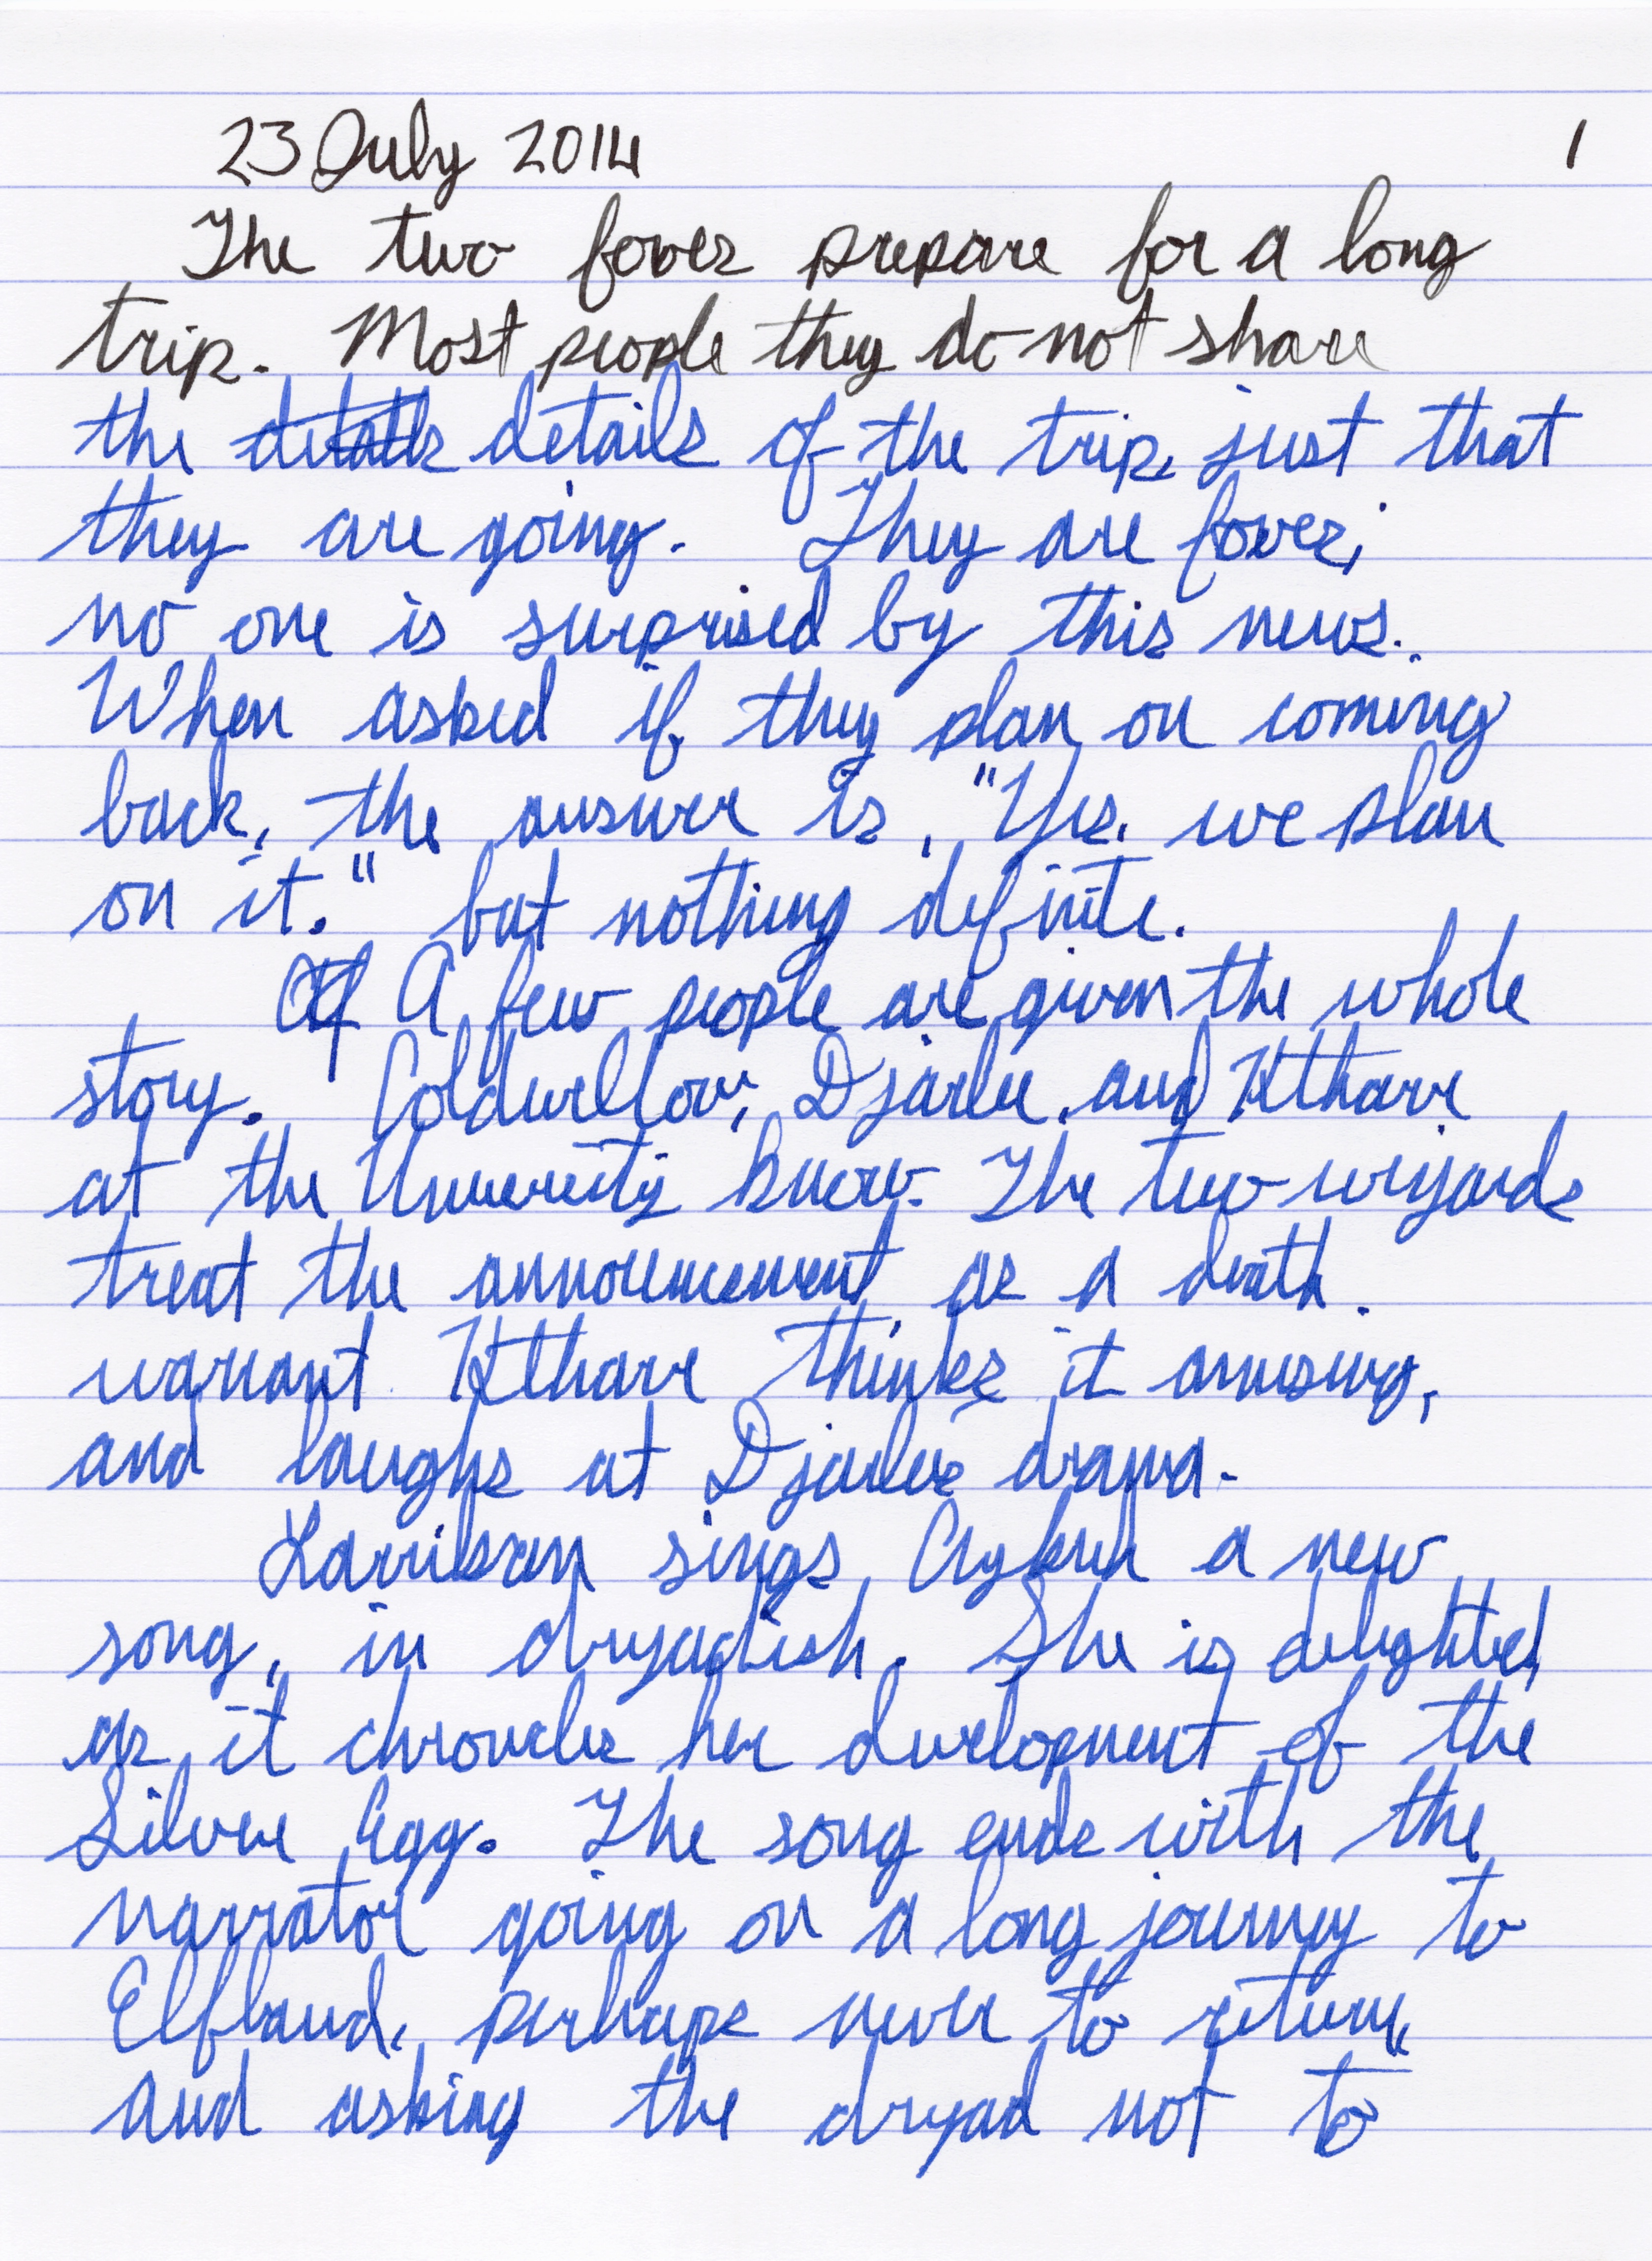 23 July 2014 1
The two foxes prepare for a long
trip. Most people they do not share
the details of the trip, just that
they are going. They are foxes;
no one is surprised by this news.
When asked if they plan on coming
back, the answer is, "Yes, we plan
on it." but nothing definite.
A few people are given the whole
story. Coldwellow, Djarlee, and Ktharr
at the University know. The two wizards
treat the announcement as a death
warrant. Ktharr thinks it amusing,
and laughs at Djarlee's drama.
sings a new
song, in dryadish. She is delighted,
as it chronicles her development of the
Silver Egg. The song ends with the
narrator going on a long journey to
Elfland, perhaps never to return,
and asking the dryad not to